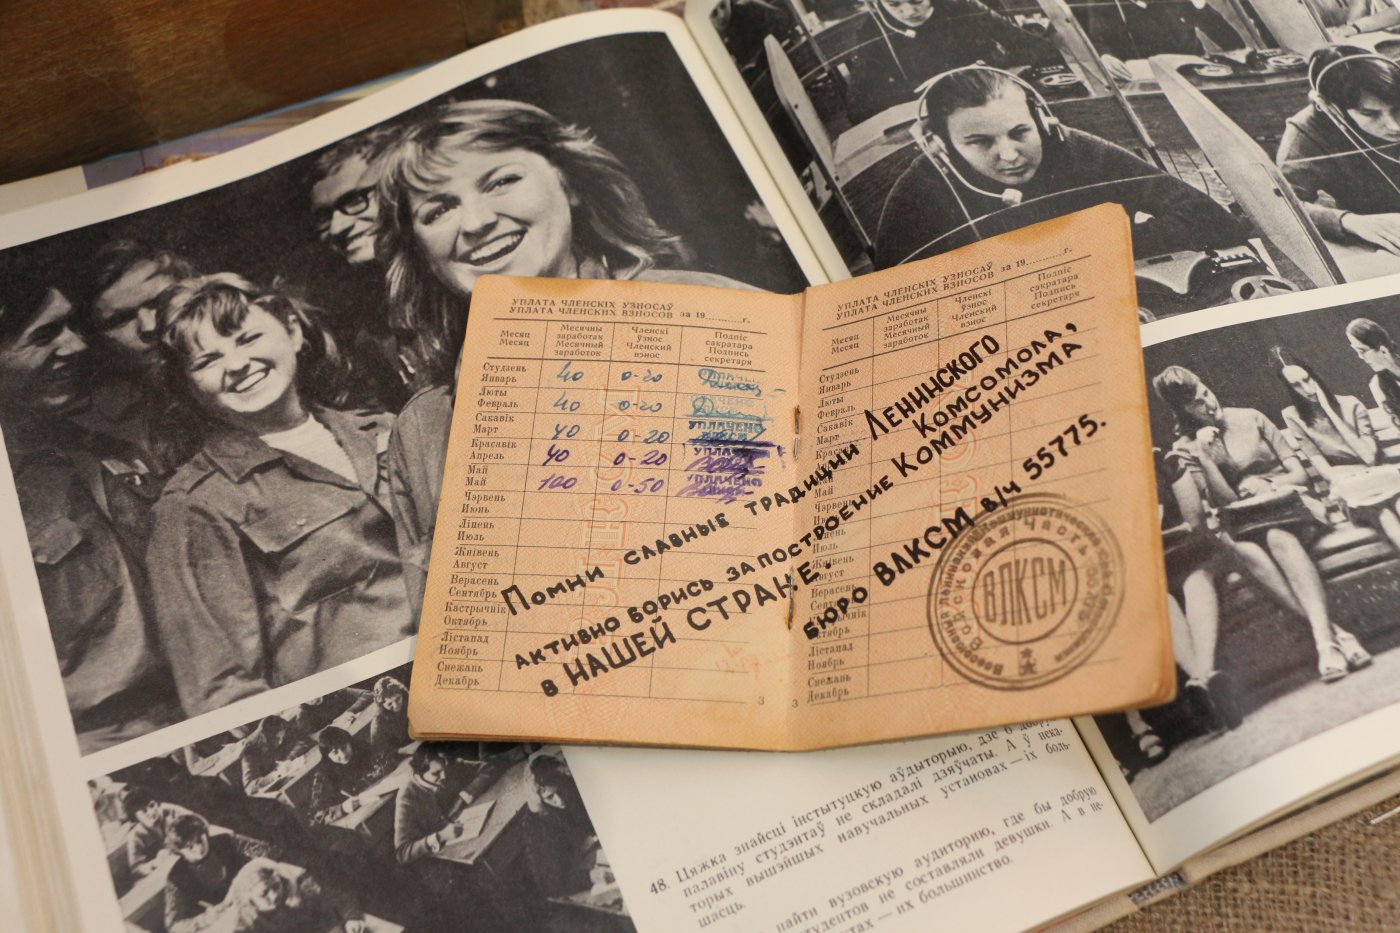 УПЛАТА ЧЛЕНСКІХ УЗНОСАЎ
УПЛАТА ЧЛЕНСКИХ ВЗНОСОВ за 19...........г.
Месяц
Месяц
Месячны
заработак
Месячный
заработок
Членскі
ўзнос
Членский
взнос
Подпіс
сакратара
Подпись
секретаря
Студзень
Январь
40
0-20
Люты
Февраль
40
0-20
Сакавік
Март
40
0-20
УПЛАЧЕНО
Красавік
Апрель
40
0-20
Май
Май
100
0-50
УПЛАЧЕНО
Чэрвень
Июнь
Ліпень
Июль
Жнівень
Август
Верасень
Сентябрь
Кастрычнік
Октябрь
Лістапад
Ноябрь
Снежань
Декабрь
3
УПЛАТА ЧЛЕНСКІХ УЗНОСАЎ
УПЛАТА ЧЛЕНСКИХ ВЗНОСОВ за 19...........г.
Месяц
Месяц
Месячны
заработак
Месячный
заработок
Членскі
ўзнос
Членский
взнос
Подпіс
сакратара
Подпись
секретаря
Студзень
Январь
Люты
Февраль
Сакавік
Март
Май
Июль
Август
Верасень
Октябрь
Лістапад
Ноябрь
Снежань
Декабрь
3
Помни славные традиции Ленинского Комсомола,
активно борись за построение Коммунизма
в НАШЕЙ СТРАНЕ.
БЮРО ВЛКСМ в/ч 55775.
ВЛКСМ
48. Цяжка знайсці інстытуцкую аўдыторыю, дзе б добрую
палавіну студэнтаў не складалі дзяўчаты. А ў нека-
торых вышэйшых навучальных установах — іх боль-
шасць.
найти вузовскую аудиторию, где бы добрую
не составляли девушки. А в не-
— их большинство.